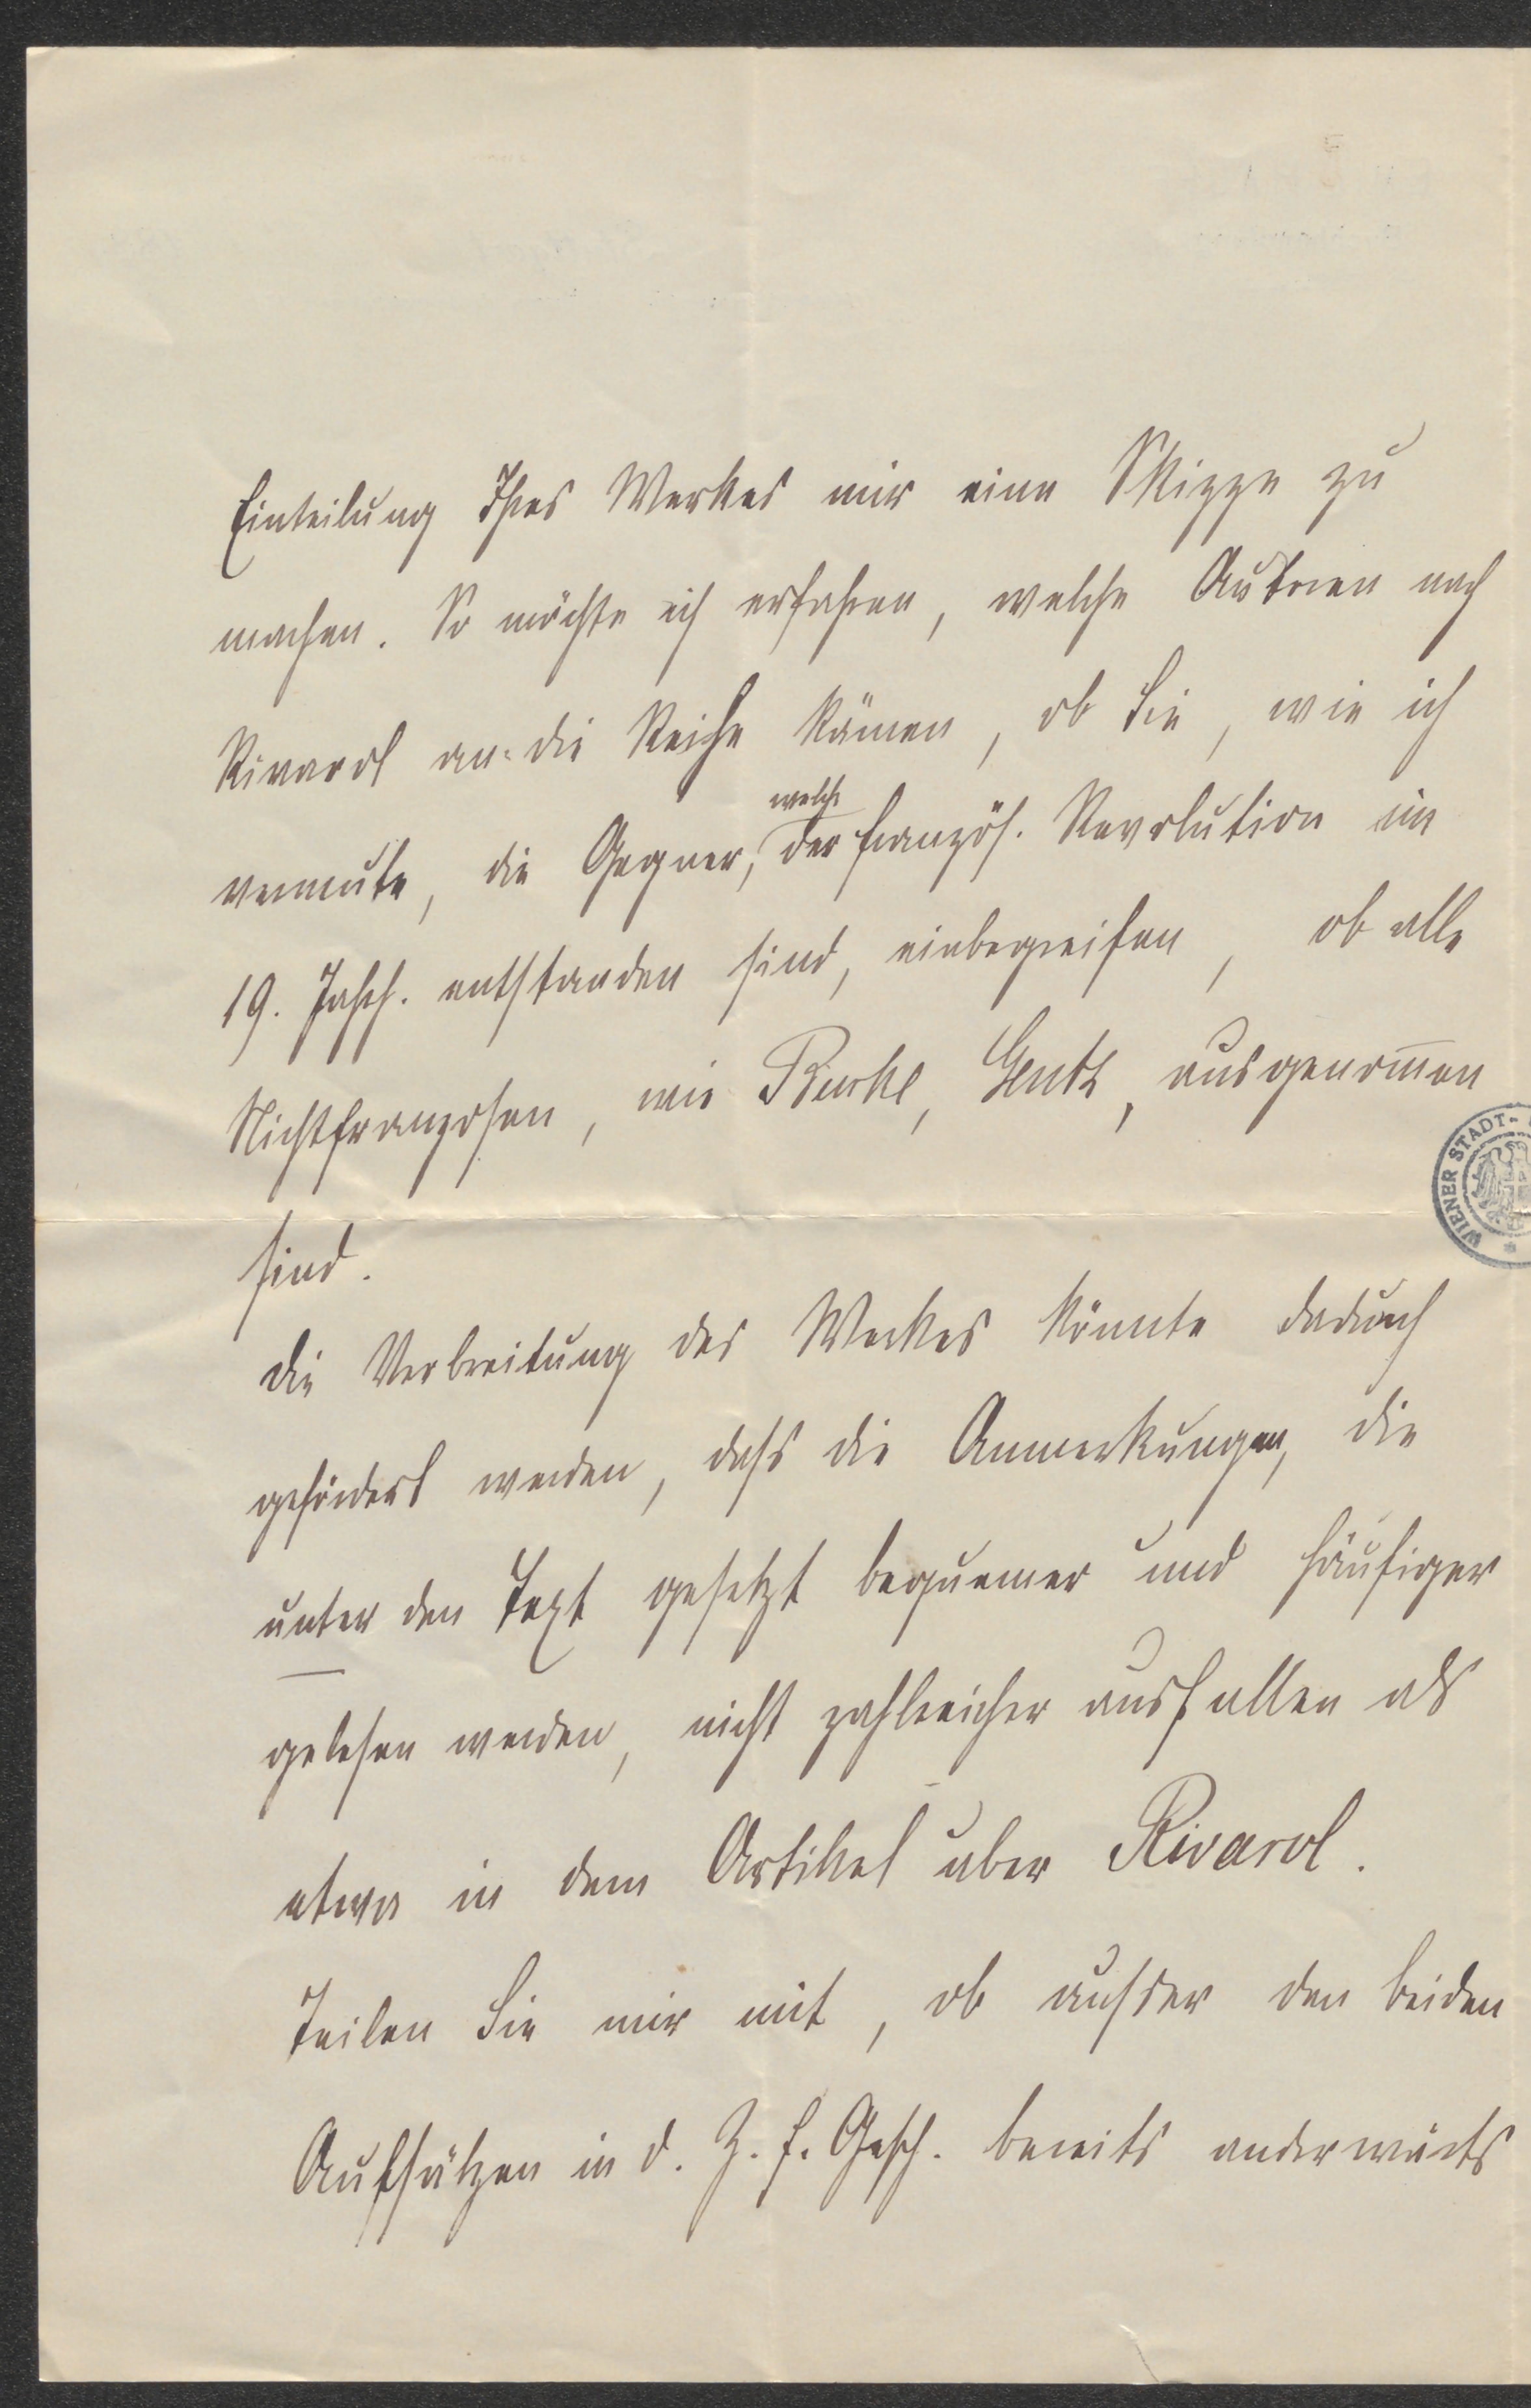 Einteilung Ihres Werkes mir eine Skizze zu
machen. So möchte ich erfahren, welche Autoren nach
Rivarol an die Reihe kämen, ob Sie, wie ich
welche
vermute, die Gegner, der französ. Revolution im
19. Jahrh. entstanden sind, einbegreifen, ob alle
Nichtfranzosen, wie Burke, Gentz, ausgenom̅en
sind.
Die Verbreitung des Werkes könnte dadurch
gefördert werden, daſs die Anmerkungen, die
unter den Text gesetzt bequemer und häufiger
gelesen werden, nicht zahlreicher ausfallen als
etwa in dem Artikel über Rivarol.
Teilen Sie mir mit, ob auſser den beiden
Aufsätzen in d. Z. f. Gesch. bereits anderwärts
WIENER STADT-